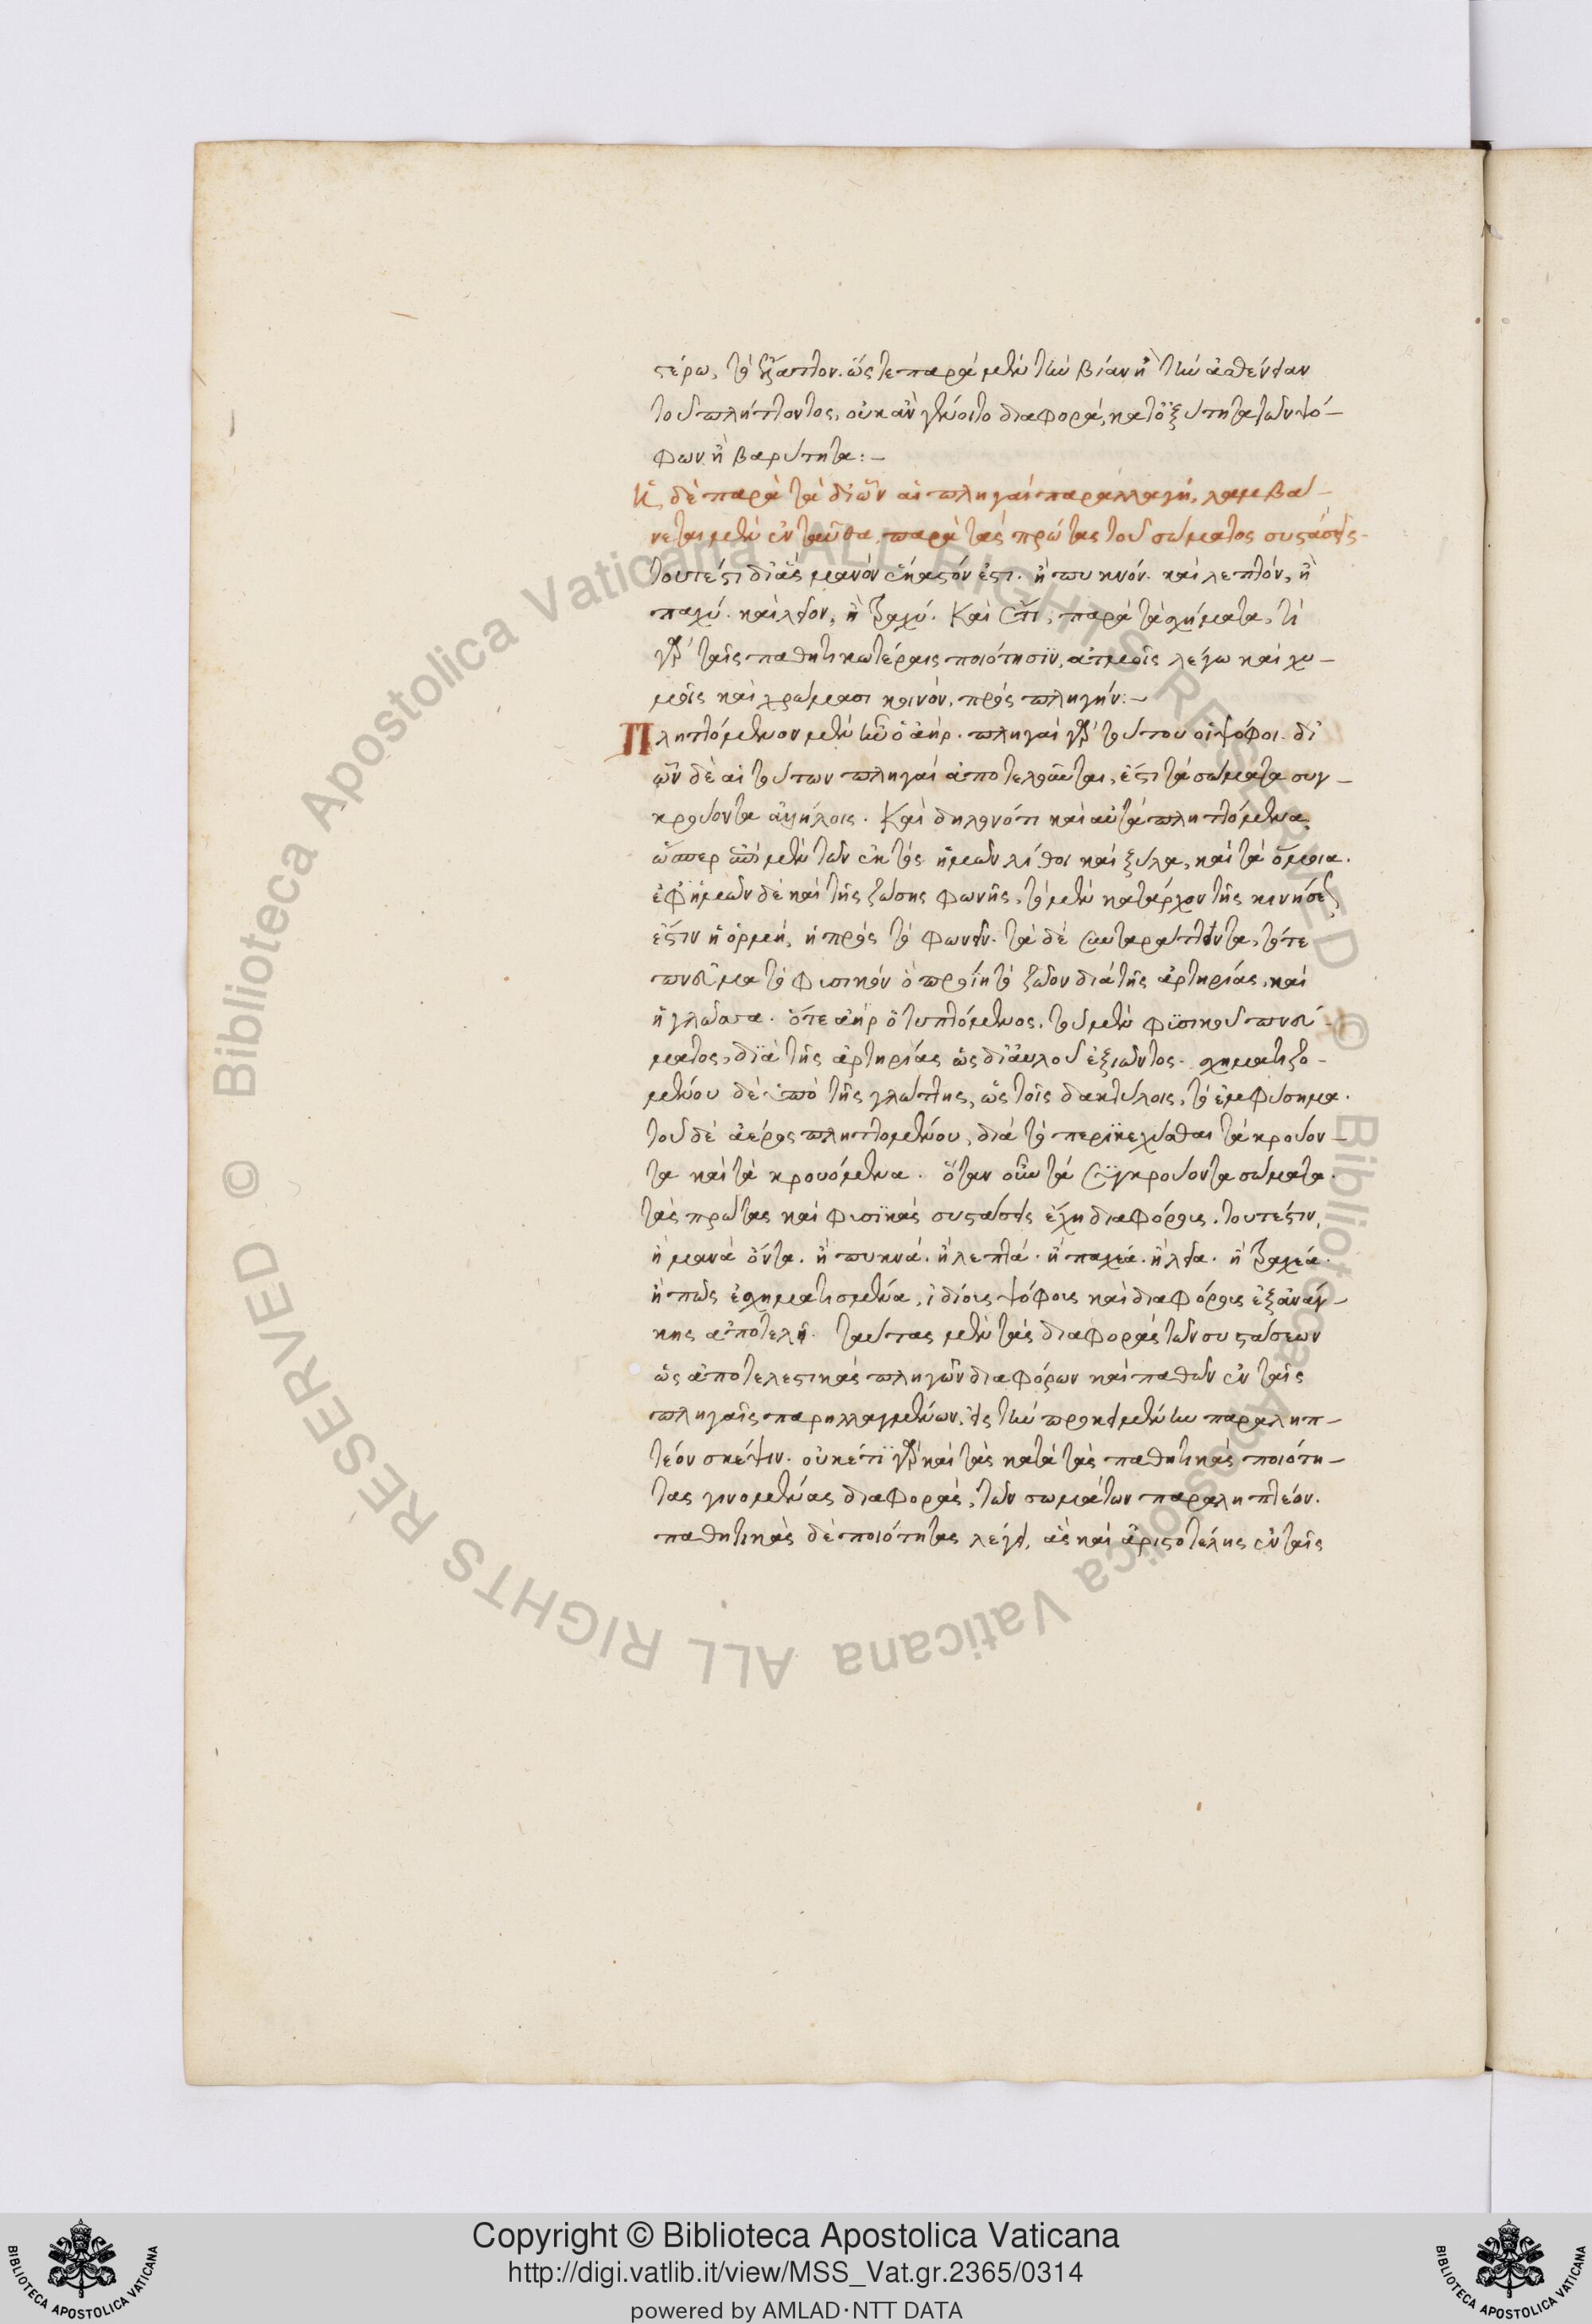 τέρω, τὸ ἔλαττον. ὥστε παρὰ μὲν τὴν βίαν ἢ τὴν ἀσθένειαν
τοῦ πλήττοντος, οὐκ ἂν γένοιτο διαφορά, κατ' ὀξύτητα τῶν ψό-
φων ἢ βαρύτητα:-
Ἡ δὲ παρὰ τὰ δι' ὧν αἱ πληγαὶ παραλλαγή, λαμβά-
νεται μὲν ἐνταῦθα, παρὰ τὰς πρώτας τοῦ σώματος συστάσεις.
τουτέστι δι' ἃς μανόν ἕκαστόν ἐστι. ἢ πυκνόν. καὶ λεπτόν, ἢ
παχύ. καὶ λεῖον, ἢ τραχύ. Καὶ ἔτι, παρὰ τὰ σχήματα, τί
γὰρ ταῖς παθητικωτέραις ποιότησιν, ἀτμοῖς λέγω καὶ χυ-
μοῖς καὶ χρώμασι κοινόν, πρὸς πληγήν:-
Πληττόμενον μὲν ἦν ὁ ἀήρ. πληγαὶ γὰρ τούτου οἱ ψόφοι. δι'
ὧν δὲ αἱ τούτων πληγαὶ ἀποτελοῦνται, ἔστι τὰ σώματα συγ-
κρούοντα ἀλλήλοις. Καὶ δηλονότι καὶ αὐτὰ πληττόμενα,
ὥσπερ ἐπὶ μὲν τῶν ἐκτὸς ἡμῶν λίθοι καὶ ξύλα, καὶ τὰ ὅμοια.
ἐφ' ἡμῶν δὲ καὶ τῆς ζώσης φωνῆς, τὸ μὲν κατάρχον τῆς κινήσεως
ἐστιν ἡ ὁρμή, ἡ πρὸς τὸ φωνεῖν. τὰ δὲ συνταράττοντα, τό τε
πνεῦμα τὸ φυσικὸν ὃ προΐη τὸ ζῶον διὰ τῆς ἀρτηρίας, καὶ
ἡ γλῶσσα. ὅ τε ἀὴρ ὁ τυπτόμενος. τοῦ μὲν φυσικοῦ πνεύ-
ματος, διὰ τῆς ἀρτηρίας ὡς δι' αὐλοῦ ἐξιῶντος. σχηματιζο-
μένου δὲ ὑπὸ τῆς γλώττης, ὡς τοῖς δακτύλοις, τὸ ἐμφύσημα.
τοῦ δὲ ἀέρος πληττομένου, διὰ τὸ περικεχύσθαι τὰ κρούον-
τα καὶ τὰ κρουόμενα. ὅταν οὖν τὰ συγκρούοντα σώματα.
τὰς πρώτας καὶ φυσικὰς συστάσεις ἔχῃ διαφόρους. τουτέστιν,
ἢ μανὰ ὄντα. ἢ πυκνά. ἢ λεπτά. ἢ παχέα. ἢ λεῖα. ἢ τραχέα.
ἤ πως ἐσχηματισμένα, ἰδίους ψόφους καὶ διαφόρους ἐξ ἀνάγ-
κης ἀποτελῇ. ταύτας μὲν τὰς διαφορὰς τῶν συστάσεων
ὡς ἀποτελεστικὰς πληγῶν διαφόρων καὶ παθῶν ἐν ταῖς
πληγαῖς παρηλλαγμένων, εἰς τὴν προκειμένην παραληπ-
τέον σκέψιν. οὐκέτι γὰρ καὶ τὰς κατὰ τὰς παθητικὰς ποιότη-
τας γινομένας διαφοράς, τῶν σωμάτων παραληπτέον.
παθητικὰς δὲ ποιότητας λέγει, ἃς καὶ ἀριστοτέλης ἐν ταῖς
Copyright © Biblioteca Apostolica Vaticana
http://digi.vatlib.it/view/MSS_Vat.gr.2365/0314
powered by AMLAD·NTT DATA
BIBLIOTECA APOSTOLICA VATICANA
BIBLIOTECA APOSTOLICA VATICANA
© Biblioteca Apostolica Vaticana ALL RIGHTS RESERVED
© Biblioteca Apostolica Vaticana ALL RIGHTS RESERVED